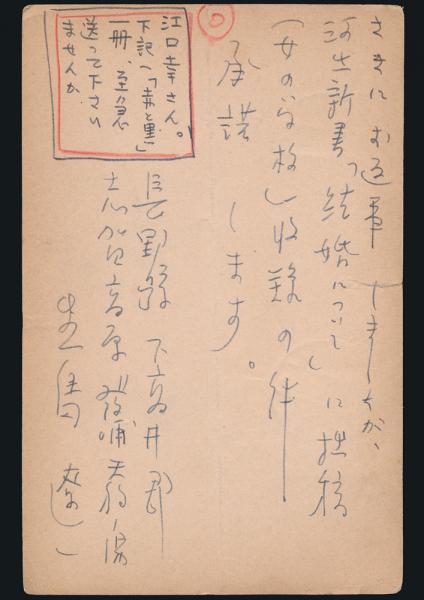 さきにお返事しましたが、
河出新書「結婚について」に拙稿
(女の学校)收録の件
承諾します。
長野縣下高井郡
志賀高原発哺天狗の湯
江口幸さん。
下記へ「赤と黒」
一冊、至急
送って下さい
ませんか